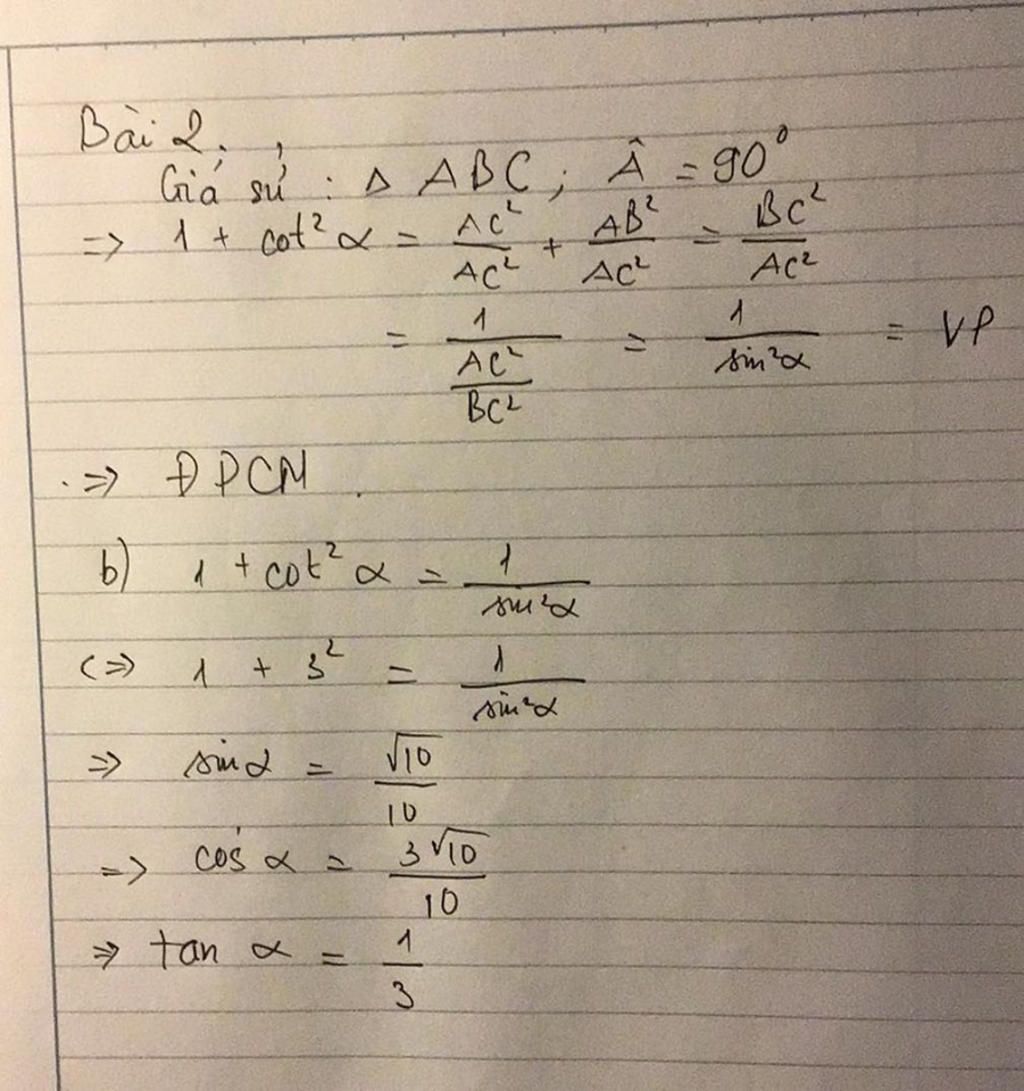 Bài 2.
Giả sử : Δ ABC ; Â = 90°
=> 1 + cot² α = AC²/AC² + AB²/AC² = BC²/AC²
= 1/(AC²/BC²) = 1/sin²α = VP
=> ĐPCM.
b) 1 + cot² α = 1/sin²α
<=> 1 + 3² = 1/sin²α
=> sin α = √10/10
=> cos α = 3√10/10
=> tan α = 1/3